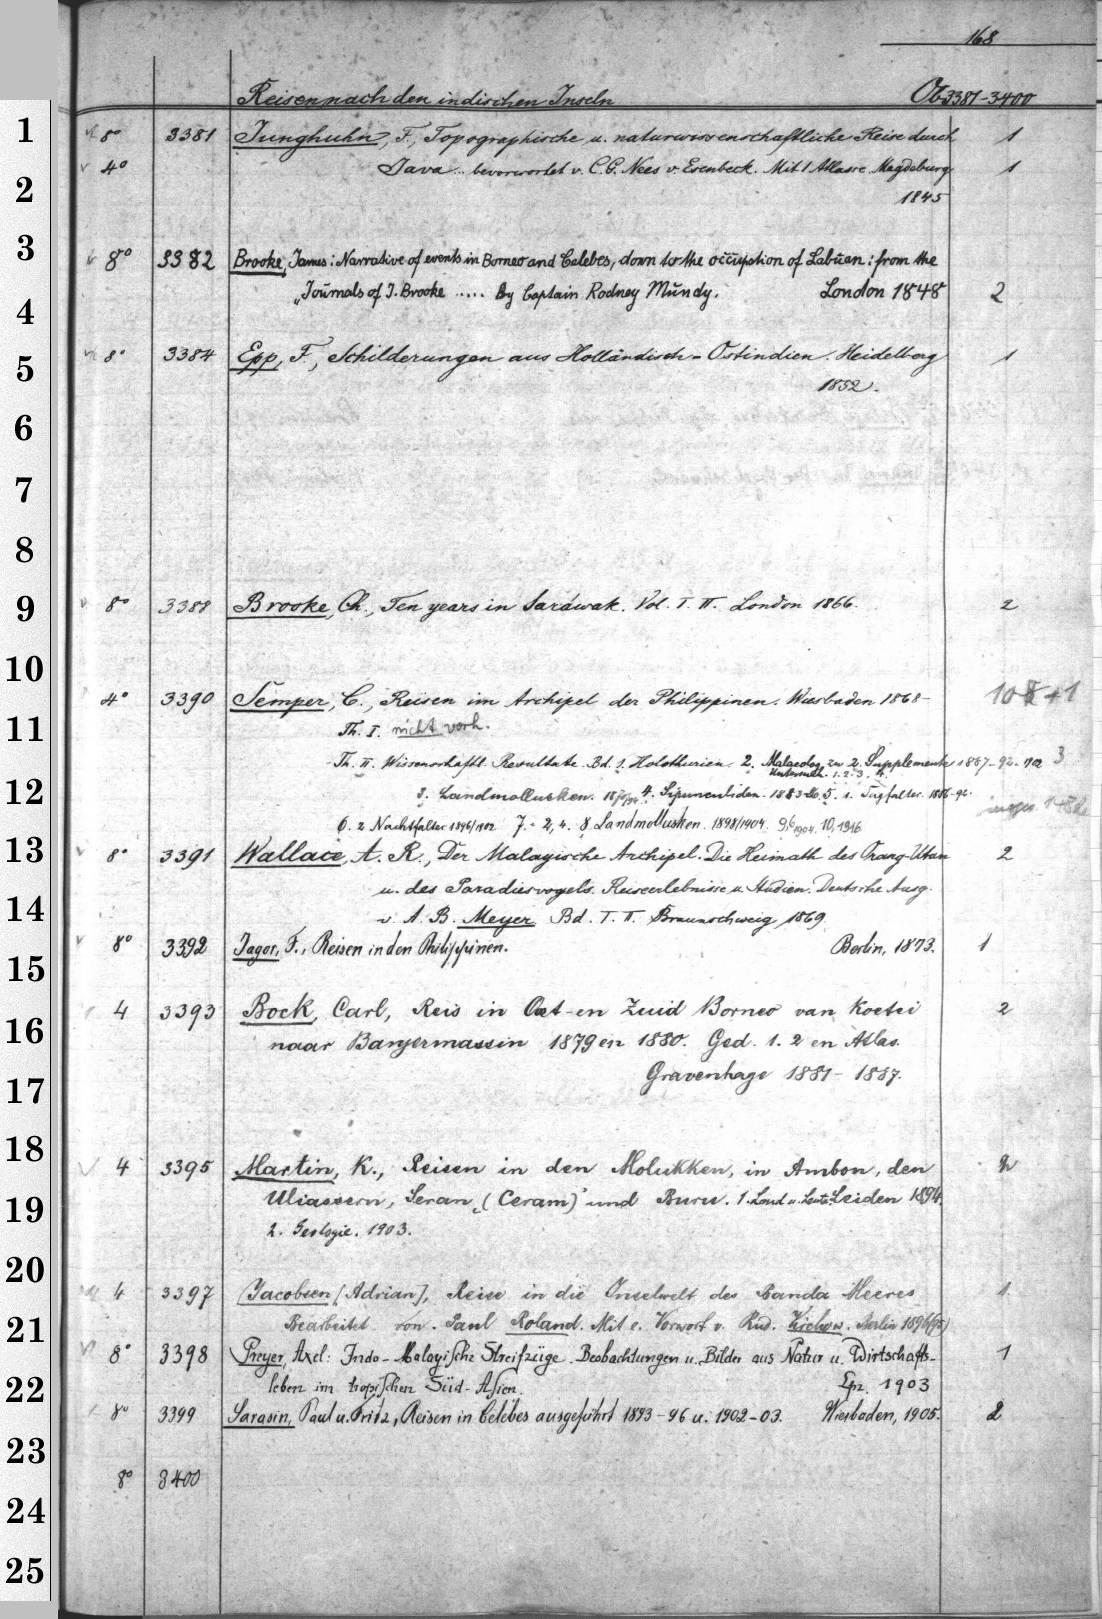 168
Reisen nach den indischen Inseln Ob 3381-3400
1
8° 3381 Junghuhn, F., Topographische u. naturwissenschaftliche Reise durch 1
4° Java .. bevorwortet v. C. G. Nees v. Esenbeck. Mit 1 Atlasse. Magdeburg 1
2
1845
3
8° 3382 Brooke, James: Narrative of events in Borneo and Celebes, down to the occupation of Labuan: from the
4
Journals of J. Brooke ..... by Captain Rodney Mundy. London 1848 2
5
8° 3384 Epp, F., Schilderungen aus Holländisch-Ostindien. Heidelberg 1
1852.
6
7
8
9
8° 3388 Brooke, Ch., Ten years in Saráwak. Vol. I. II. London 1866. 2
10
4° 3390 Semper, C., Reisen im Archipel der Philippinen. Wiesbaden 1868- +1
11
Th. I. nicht vorh.
Th. II. Wissenschaftl. Resultate. Bd. 1. Holothurien. 2. Malacolog. zu 2. Supplemente 1887-92. 3
Untersuch. 1. 2. 3. 4.
12
3. Landmollusken. 4. Sipunculiden. 1883-86. 5. 1. Tagfalter. 1886-92.
6. 2 Nachtfalter 1896/1902 7.- 2, 4. 8. Landmollusken. 1898/1904. 9,6 1904. 10, 1916
13
8° 3391 Wallace, A. R., Der Malayische Archipel. Die Heimath des Orang-Utan 2
u. des Paradiesvogels. Reiseerlebnisse u. Studien. Deutsche Ausg.
14
v. A. B. Meyer Bd. I. II. Braunschweig 1869.
15
8° 3392 Jagor, F., Reisen in den Philippinen. Berlin, 1873. 1
16
4 3393 Bock, Carl, Reis in Oost-en Zuid Borneo van Koetei 2
naar Banjermassin 1879 en 1880. Ged. 1. 2 en Atlas.
17
Gravenhage 1881-1887.
18
4 3395 Martin, K., Reisen in den Molukken, in Ambon, den
19
Uliassern, Seran (Ceram) und Buru. 1. Land u. Leute. Leiden 1894.
2. Geologie. 1903.
20
4 3397 Jacobsen [Adrian], Reise in die Inselwelt des Banda Meeres 1.
21
Bearbeitet von Paul Roland. Mit e. Vorwort v. Rud. Virchow. Berlin 1896
8° 3398 Preyer, Axel: Indo-Malayische Streifzüge. Beobachtungen u. Bilder aus Natur u. Wirtschafts- 1
22
leben im tropischen Süd-Asien. Lpz. 1903
8° 3399 Sarasin, Paul u. Fritz, Reisen in Celebes ausgeführt 1893-96 u. 1902-03. Wiesbaden, 1905. 2
23
8° 3400
24
25